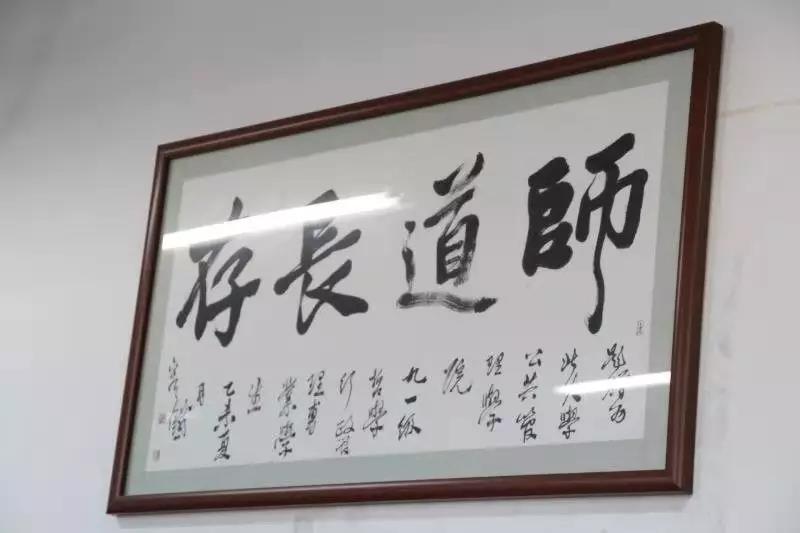 師道長存
題贈西
北大學
公共管
理學
院
九一級
哲學
行政管
理專
業學
生
乙未夏
月